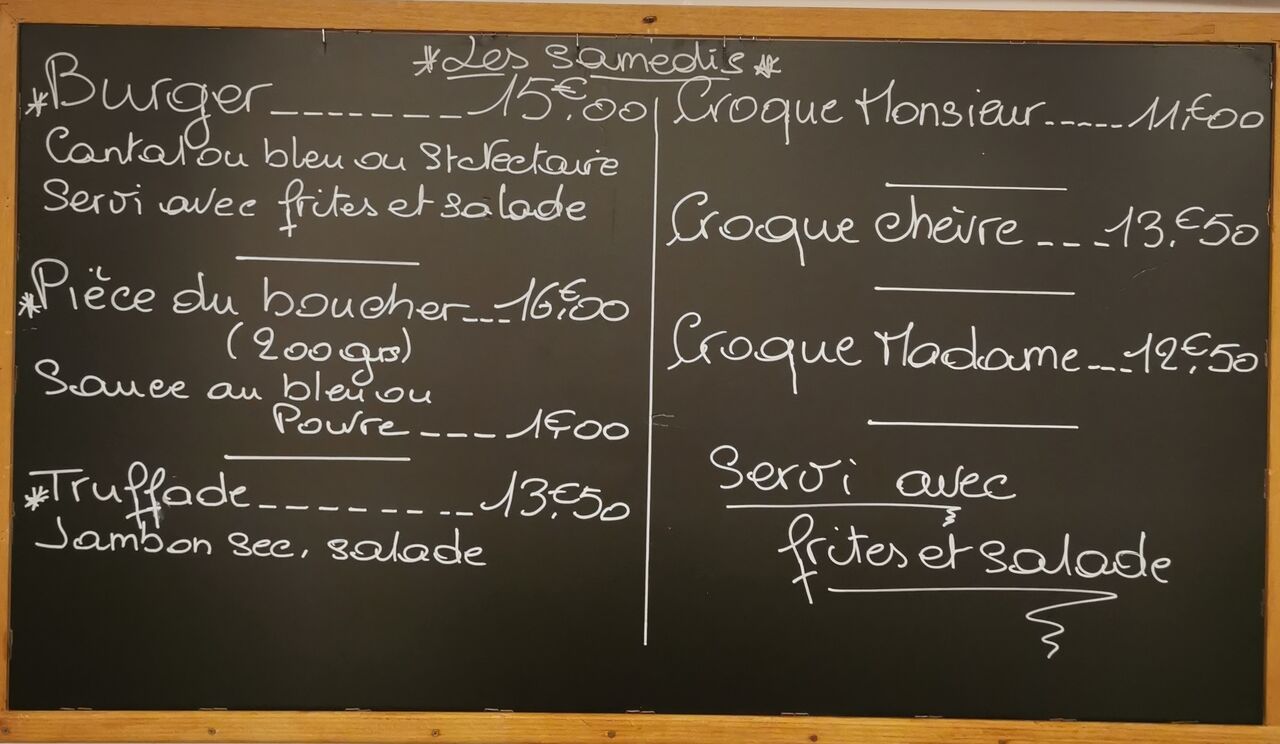 *Les Samedis*
*Burger_______15€,00
Cantal ou bleu ou St Nectaire
Servi avec frites et salade
*Pièce du boucher___16€,00
(200grs)
Sauce au bleu ou
Poivre____1€00
*Truffade________13€,50
Jambon sec, salade
Croque Monsieur.....11,€00
Croque chèvre___13,€50
Croque Madame___12€,50
Servi avec
frites et salade